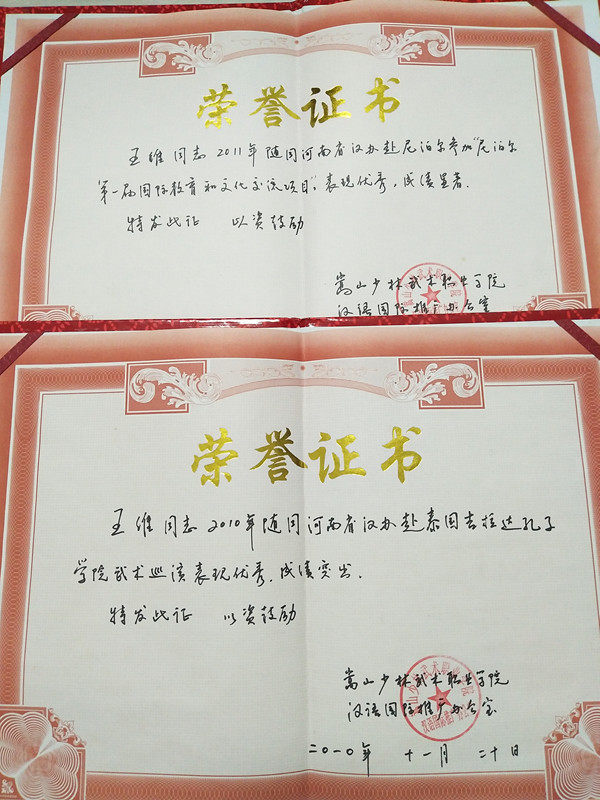 荣誉证书
王维同志2011年随同河南省汉办赴尼泊尔参加“尼泊尔
第一届国际教育和文化交流项目”，表现优秀，成绩显著．
特发此证 以资鼓励
嵩山少林武术职业学院
汉语国际推广办公室
荣誉证书
王维同志2010年随同河南省汉办赴泰国吉拉达孔子
学院武术巡演表现优秀，成绩突出．
特发此证 以资鼓励
嵩山少林武术职业学院
汉语国际推广办公室
二〇一〇年 十一月 二十日